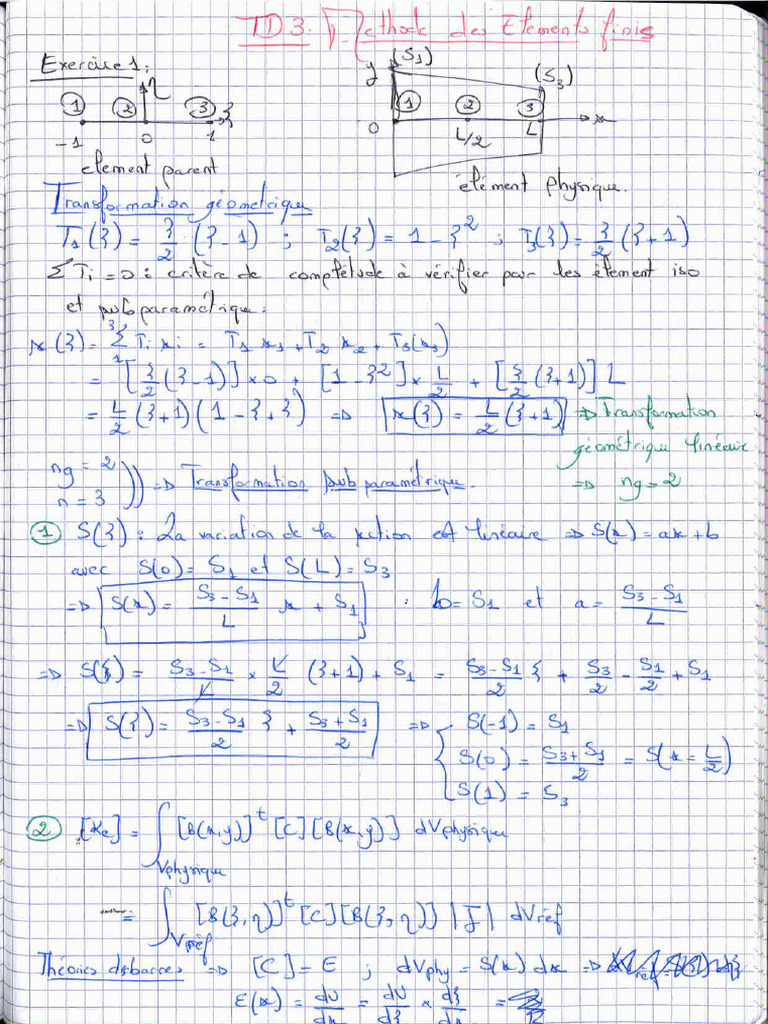 TD3: Méthode des Elements finis
Exercice 1:
① ② η ③ ξ
-1 0 1
element parent
y (S1) (S3)
① ② ③
0 L/2 L x
élément physique.
Transformation géometrique
T1(ξ) = ξ/2 (ξ-1) ; T2(ξ) = 1 - ξ² ; T3(ξ) = ξ/2 (ξ+1)
ΣTi = 0 : critère de complétude à vérifier par les élement iso
et subparamétrique:
x(ξ) = Σ₁³ Ti xi = T1 x1 + T2 x2 + T3(x3)
= [ξ/2 (ξ-1)] × 0 + [1-ξ²] × L/2 + [ξ/2 (ξ+1)] L
= L/2 (ξ+1)(1-ξ+ξ) => x(ξ) = L/2 (ξ+1) => Transformation
géométrique linéaire
=> ng = 2
ng = 2
n = 3 )) => Transformation subparamétrique.
① S(ξ) : La variation de la section est linéaire => S(x) = ax + b
avec S(0) = S1 et S(L) = S3
=> S(x) = (S3-S1)/L x + S1 : b = S1 et a = (S3-S1)/L
=> S(ξ) = (S3-S1)/L × L/2 (ξ+1) + S1 = (S3-S1)/2 ξ + S3/2 - S1/2 + S1
=> S(ξ) = (S3-S1)/2 ξ + (S3+S1)/2 => { S(-1) = S1
S(0) = (S3+S1)/2 = S(x = L/2)
S(1) = S3
② [Ke] = ∫Vphysique [B(x,y)]^t [C][B(x,y)] dVphysique
= ∫Vréf [B(ξ,η)]^t [C][B(ξ,η)] |J| dVréf
Théories des barres => [C] = E ; dVphy = S(x) dx =>
ε(x) = dU/dx = dU/dξ × dξ/dx =